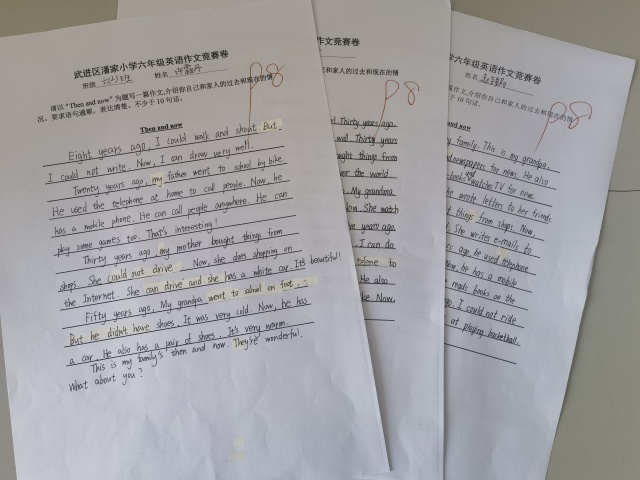 武进区潘家小学六年级英语作文竞赛卷
班级 六(2)班 姓名
请以“Then and now”为题写一篇作文,介绍你自己和家人的过去和现在的情
况。要求语句通顺,表达清楚。不少于10句话。
Then and now
Eight years ago, I could walk and shout. But,
I could not write. Now, I can draw very well.
Twenty years ago, my father went to school by bike.
He used the telephone at home to call people. Now, he
has a mobile phone. He can call people anywhere. He can
play some games too. That's interesting!
Thirty years ago, my mother bought things from
shops. She could not drive. Now, she does shopping on
the Internet. She can drive and she has a white car. It's beautiful!
Fifty years ago, My grandpa went to school on foot.
But he didn't have shoes. It was very cold. Now, he has
a car. He also has a pair of shoes. It's very warm.
This is my family's then and now. They're wonderful.
What about you?
P8
作文竞赛卷
己和家人的过去和现在的情
Thirty years ago,
well. Thirty years
bought things from
over the world.
My grandma
She watch
years ago,
I can do
to
He also
Now,
P8
学六年级英语作文竞赛卷
姓名
作文,介绍你自己和家人的过去和现在的情
少于10句话。
and now
family. This is my grandpa,
newspapers for news. He also
books and watches TV for news.
wrote letters to her friends
things from shops. Now,
She writes e-mails to
ago, he used telephone
Now, he has a mobile
reads books on the
ago, I could not ride
at playing basketball.
P8